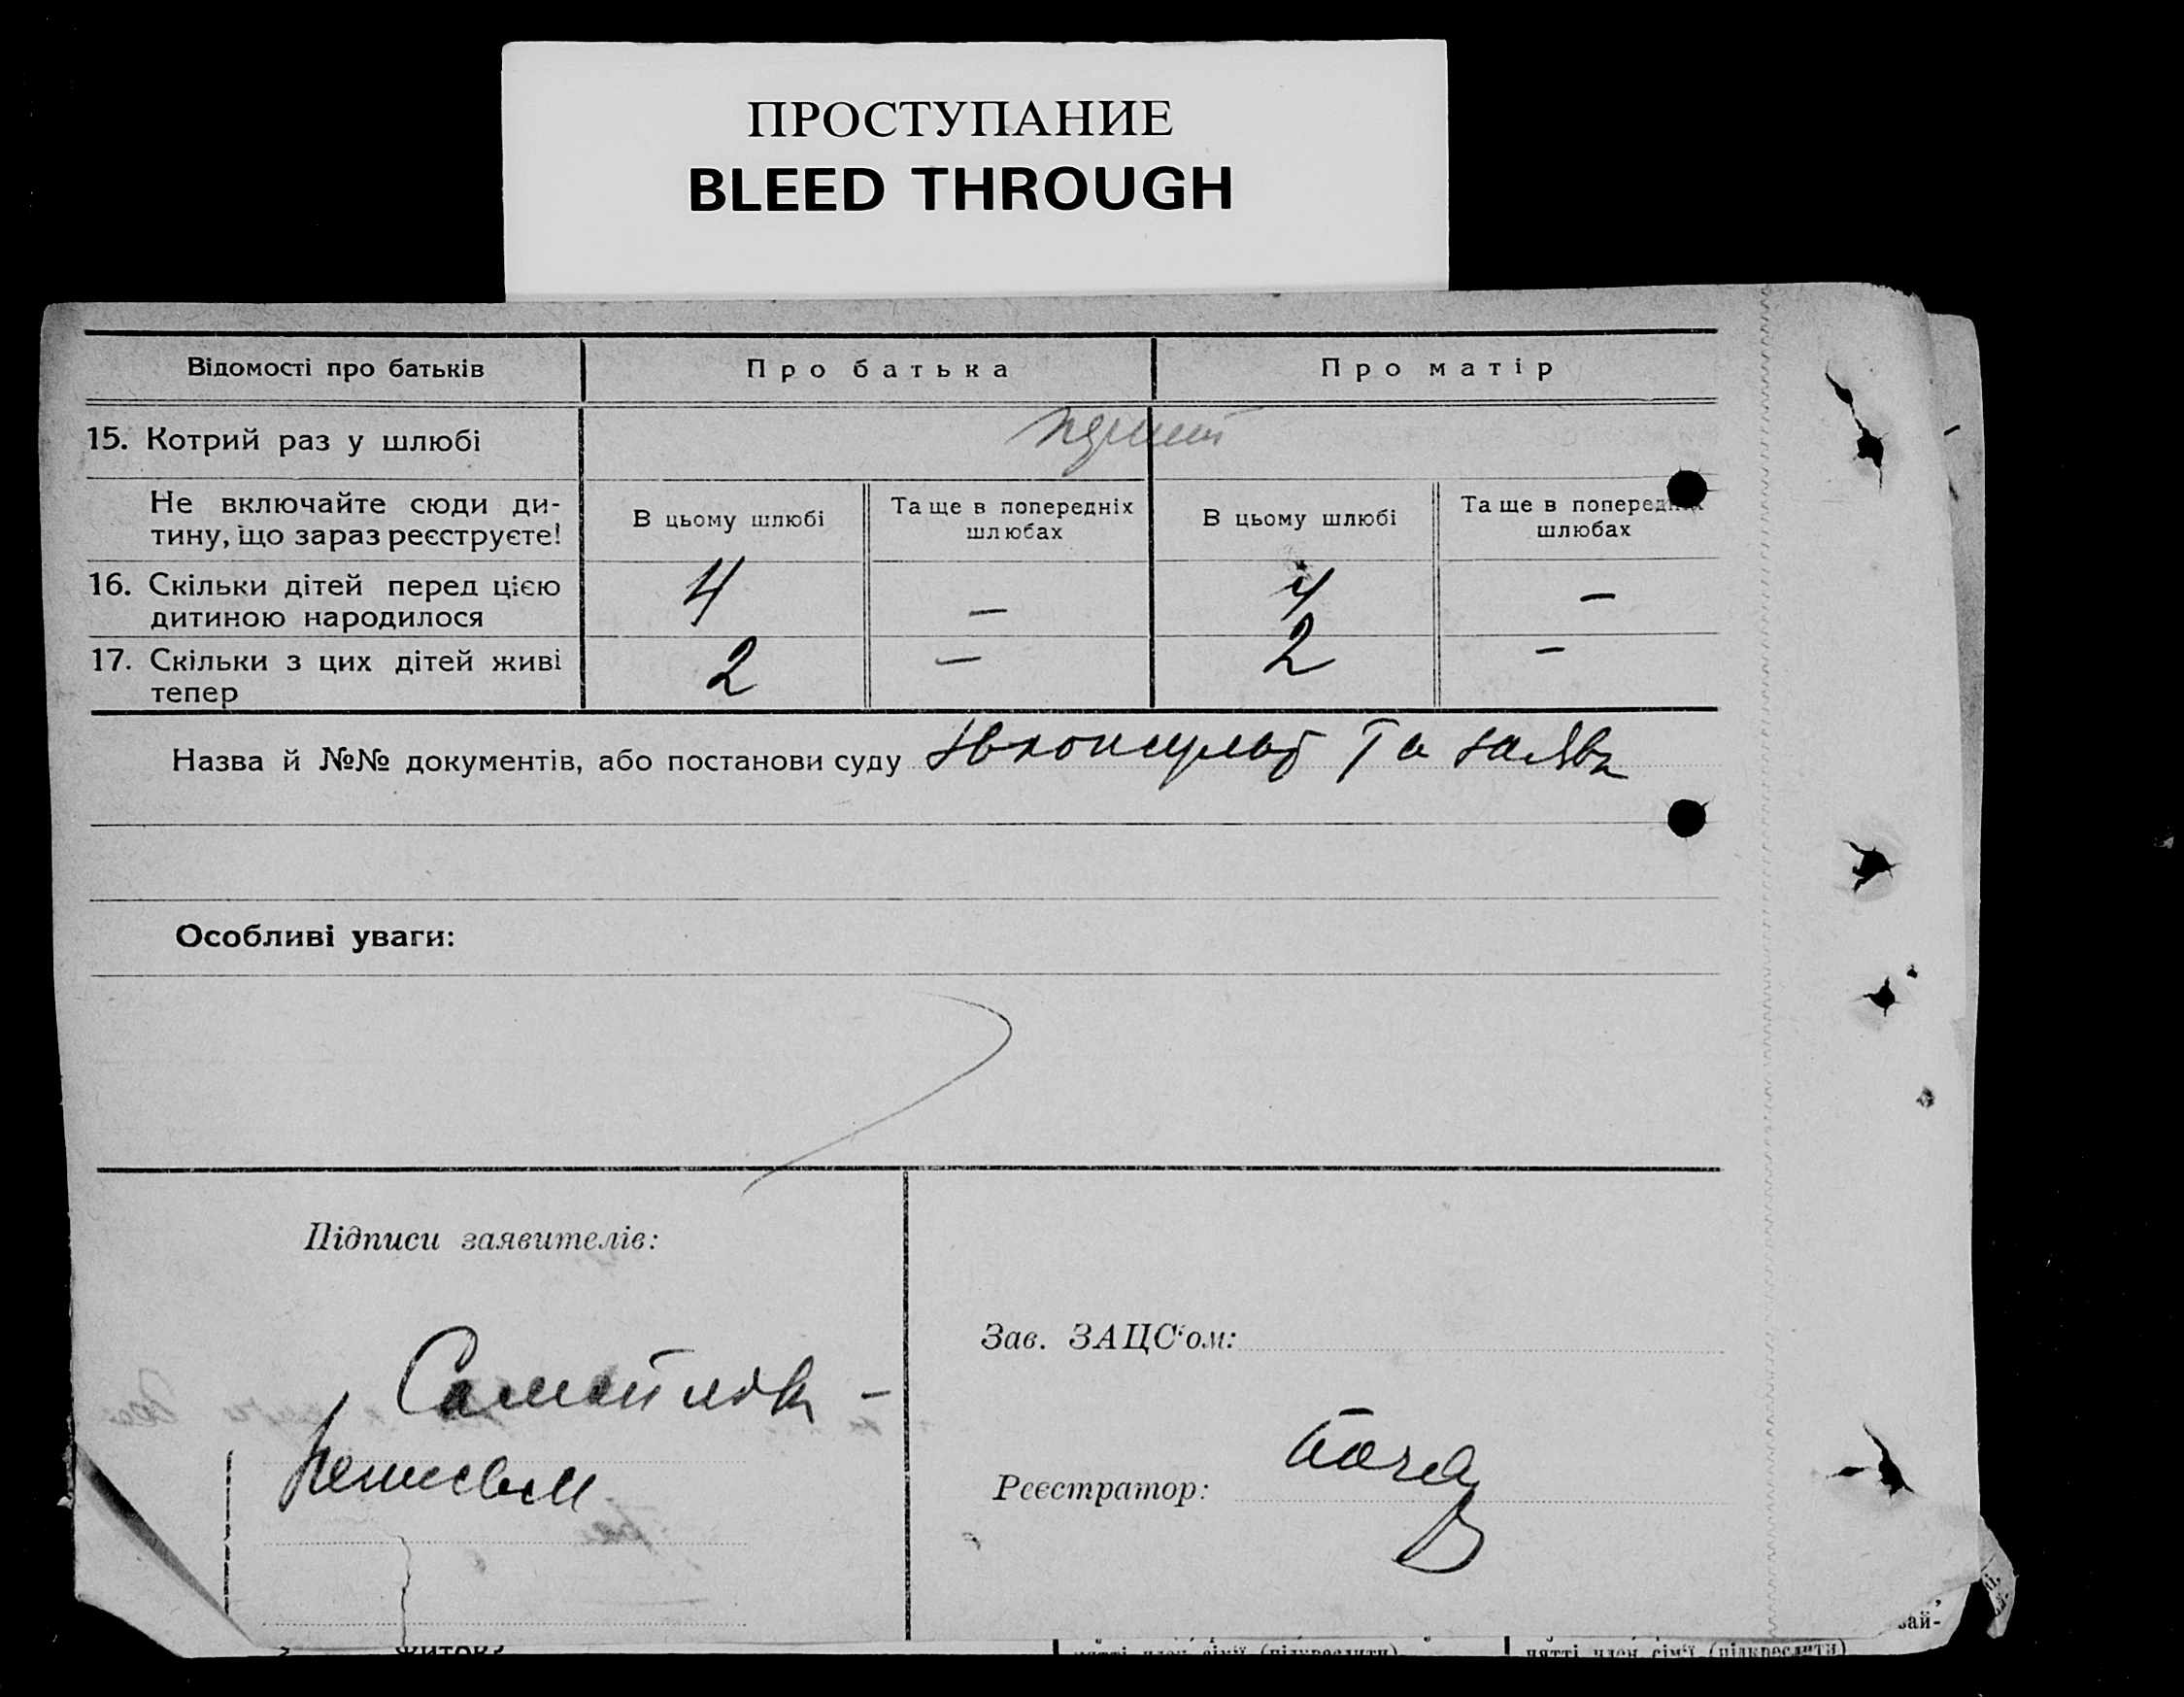 ПРОСТУПАНИЕ
BLEED THROUGH
Відомості про батьків
Про батька
Про матір
15. Котрий раз у шлюбі
Не включайте сюди ди-
тину, що зараз реєструєте!
В цьому шлюбі
Та ще в попередніх
шлюбах
В цьому шлюбі
Та ще в попередніх
шлюбах
16. Скільки дітей перед цією
дитиною народилося
4
—
4
—
17. Скільки з цих дітей живі
тепер
2
—
2
—
Назва й №№ документів, або постанови суду Та
Особливі уваги:
Підписи заявителів:
Зав. ЗАЦС‘ом:
Реєстратор: